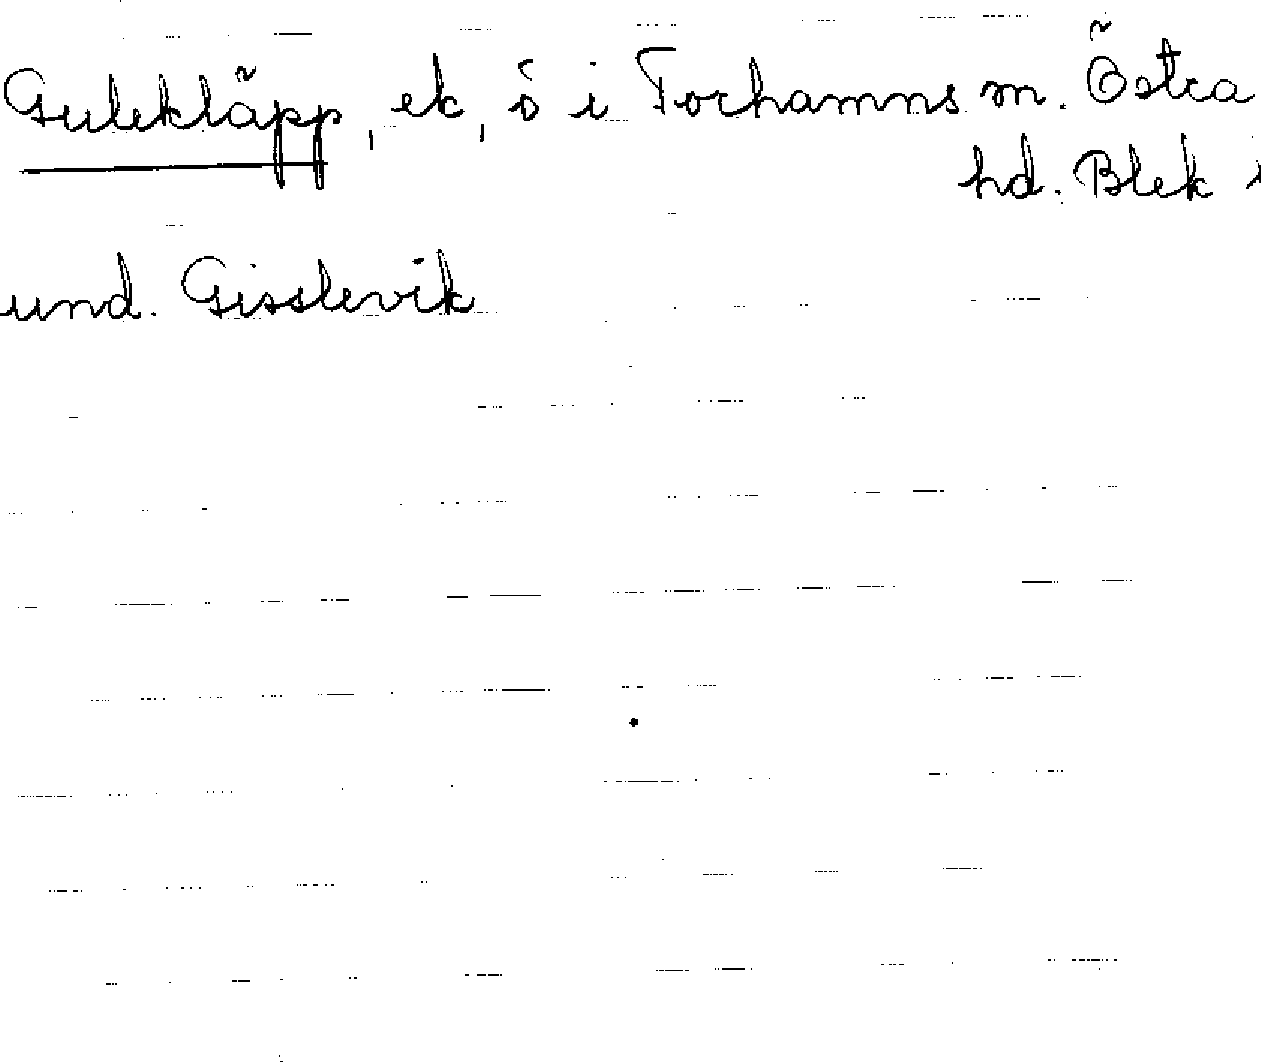 Guleklãpp, ek, ö i Torhamns m. Östra
hd. Blek i
und. Gisslevik